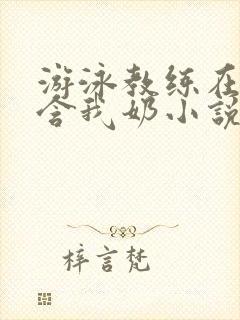 游泳教练在
含我奶小说
梓言梵